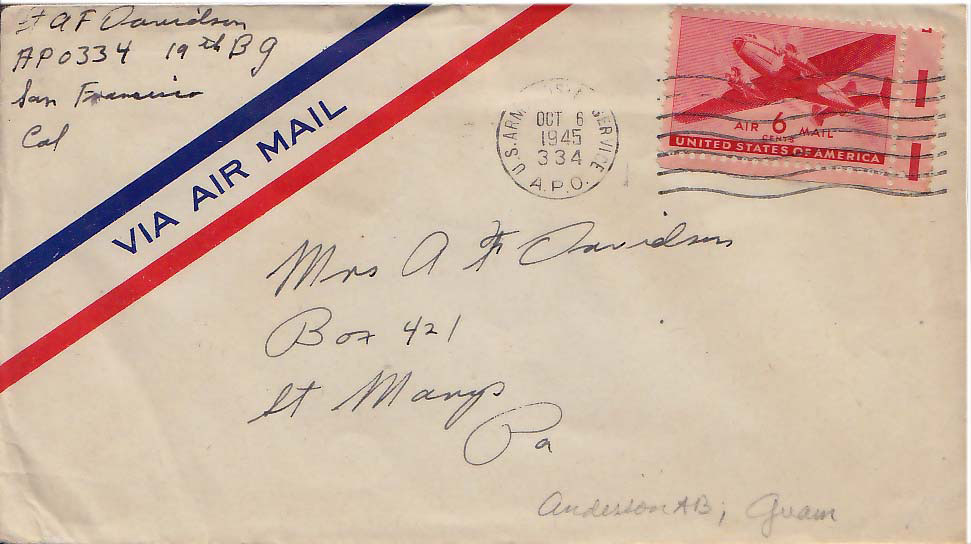 Lt A F Davidson
APO334 19th B g
San Francisco
Cal
VIA AIR MAIL
U.S. ARMY SERVICE
OCT 6
1945
334
A.P.O.
AIR 6 MAIL
CENTS
UNITED STATES OF AMERICA
Mrs A F Davidson
Box 421
St Marys
Pa
Anderson AB, Guam